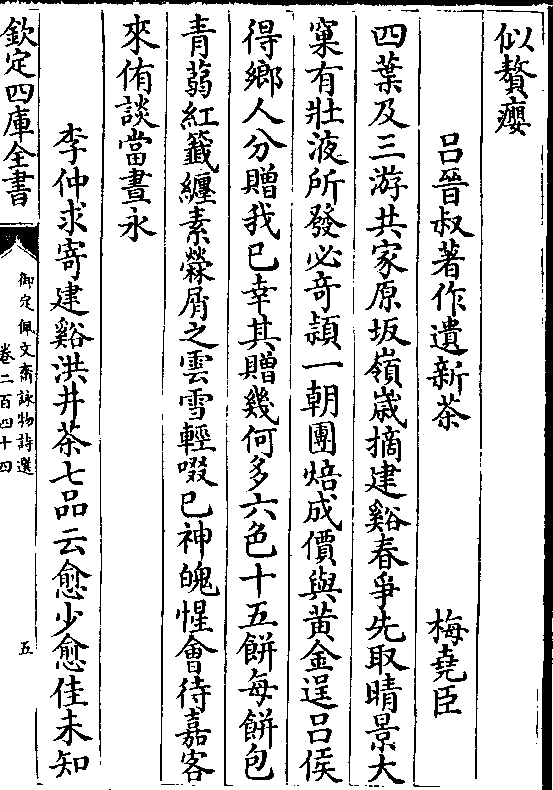 似贅癭
呂晉叔著作遺新茶　梅堯臣
四葉及三游共家原坂嶺歲摘建谿春爭先取晴景大
窠有壯液所發必竒頴一朝團焙成價與黃金逞呂侯
得鄉人分贈我已幸其贈幾何多六色十五餅每餅包
青蒻紅籤纏素𦿆屑之雲雪輕啜已神魄惺會待嘉客
來侑談當晝永
李仲求寄建谿洪井茶七品云愈少愈佳未知
欽定四庫全書
御定佩文齋詠物詩選
卷二百四十四
五